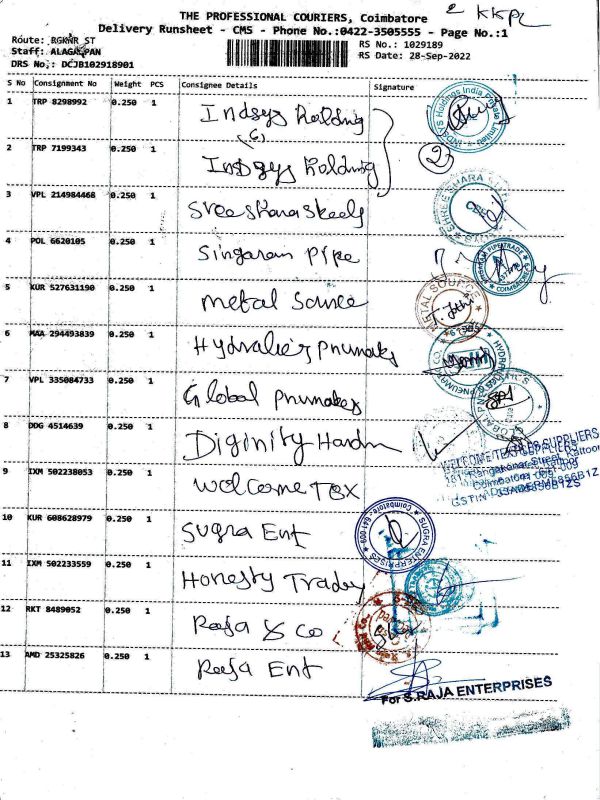 THE PROFESSIONAL COURIERS, Coimbatore
2 KKPL
Delivery Runsheet - CMS - Phone No.:0422-3505555 - Page No.:1
Route: RGKNR_ST
RS No.: 1029189
Staff: ALAGAPPAN
RS Date: 28-Sep-2022
DRS No.: DCJB102918901
S No Consignment No Weight PCS Consignee Details Signature
1 TRP 8298992 0.250 1 Indsys Holding
(2)
2 TRP 7199343 0.250 1 Indsys Holding
3 VPL 214984468 0.250 1 Sree Shara Steels
4 POL 6620105 0.250 1 Singaram Pipe
5 KUR 527631190 0.250 1 Metal Source
METAL SOURCE
6 MAA 294493839 0.250 1 Hydralics Pnumaks
7 VPL 335084733 0.250 1 Global pnumakes
8 DDG 4514639 0.250 1 Diginity Hardn
WELCOME TEX SUPPLIERS
9 IXM 502238053 0.250 1 Welcome Tex
10 KUR 608628979 0.250 1 Sugra Ent
SUGRA ENTERPRISES
11 IXM 502233559 0.250 1 Honesty Tradey
12 RKT 8489052 0.250 1 Raja & Co
13 AMD 25325826 0.250 1 Raja Ent
For S.RAJA ENTERPRISES